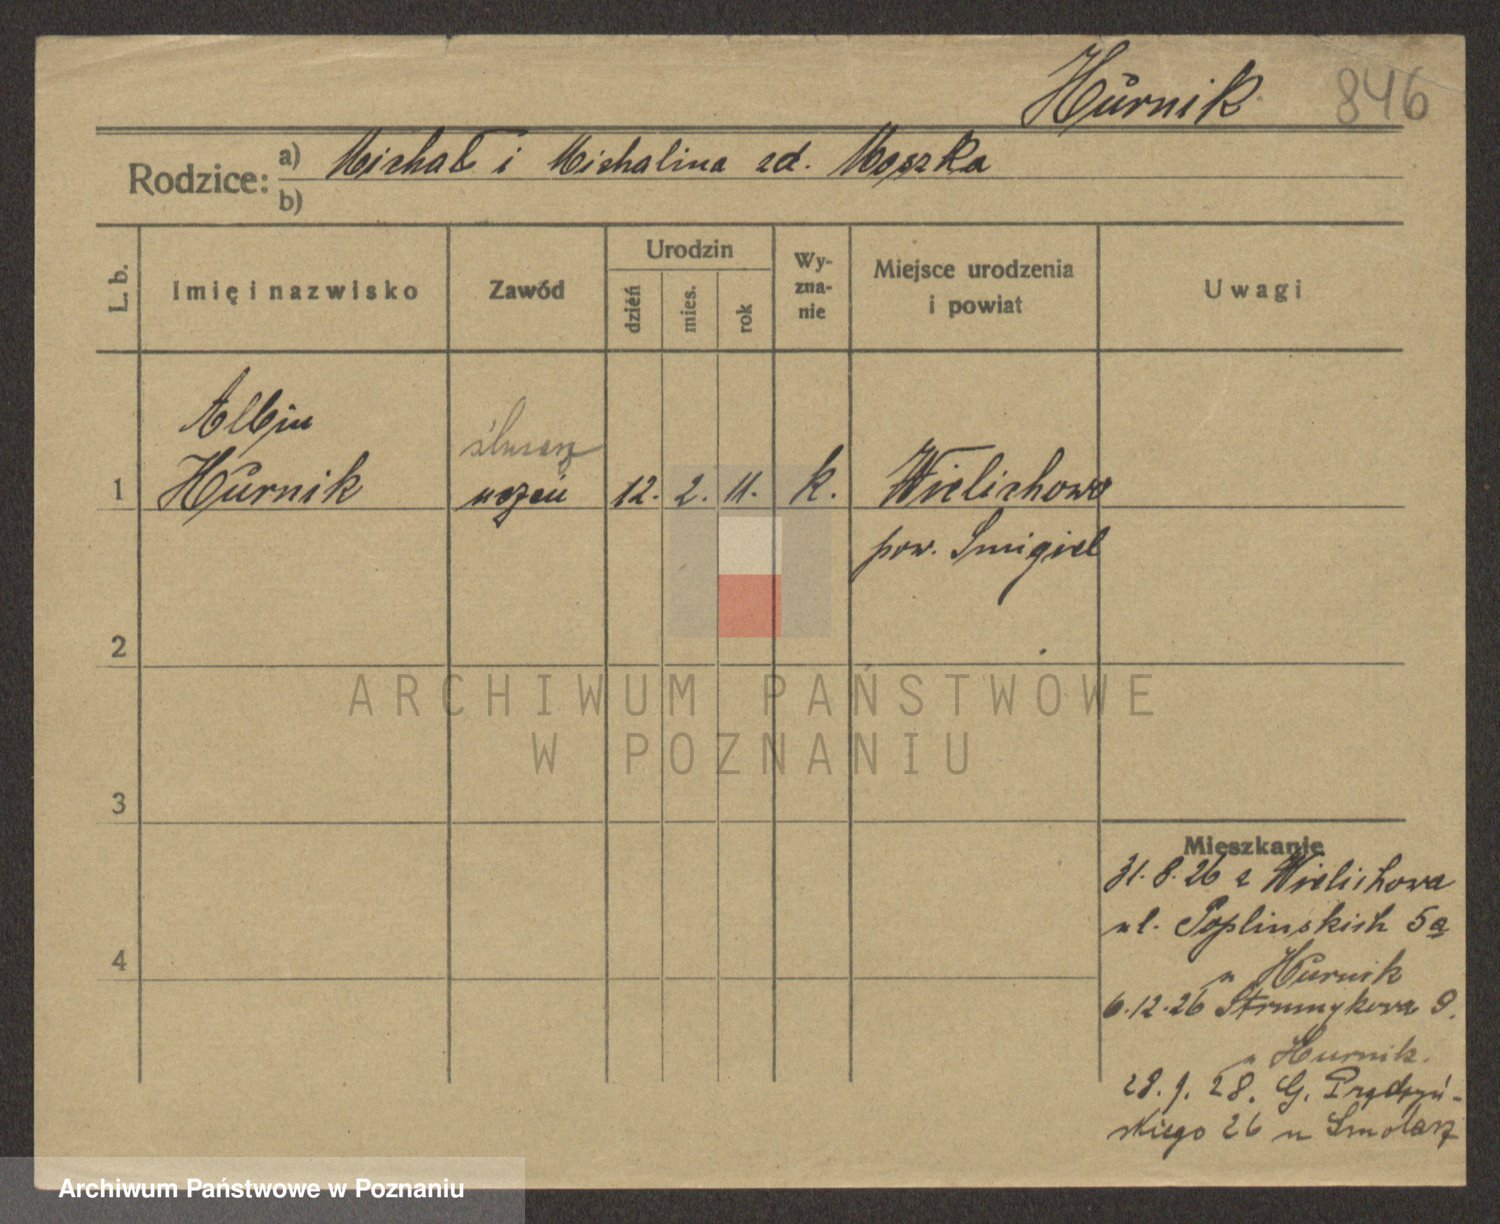 Hurnik 846
Rodzice:
a) Michał i Michalina zd. Moszka
b)
L. b.
Imię i nazwisko
Zawód
Urodzin
dzień
mies.
rok
Wy-
zna-
nie
Miejsce urodzenia
i powiat
Uwagi
Albin
ślusarz
1 Hurnik uczeń 12. 2. 11. k. Wielichowo
pow. Smigiel
2
3
4
ARCHIWUM PAŃSTWOWE
W POZNANIU
Mieszkanie
31.8.26 z Wielichowa
ul. Poplinskich 5a
u Hurnik
6.12.26 Strumykowa 9.
u Hurnik.
28.9.28. G. Prądzyń-
skiego 26 u Smolarz
Archiwum Państwowe w Poznaniu